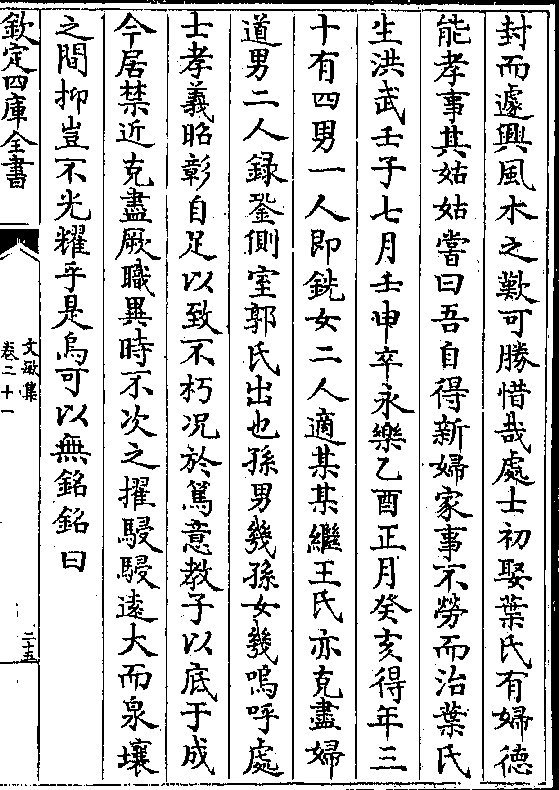 封而遽興風木之歎可勝惜哉處士初娶葉氏有婦德
能孝事其姑姑嘗曰吾自得新婦家事不勞而治葉氏
生洪武壬子七月壬申卒永樂乙酉正月癸亥得年三
十有四男一人即銑女二人適某某繼王氏亦克盡婦
道男二人録鋆側室郭氏出也孫男幾孫女幾嗚呼處
士孝義昭彰自足以致不朽况於篤意教子以底于成
今居禁近克盡厥職異時不次之擢駸駸遠大而泉壤
之間抑豈不光耀乎是烏可以無銘銘曰
欽定四庫全書
文敏集
卷二十一
二十五